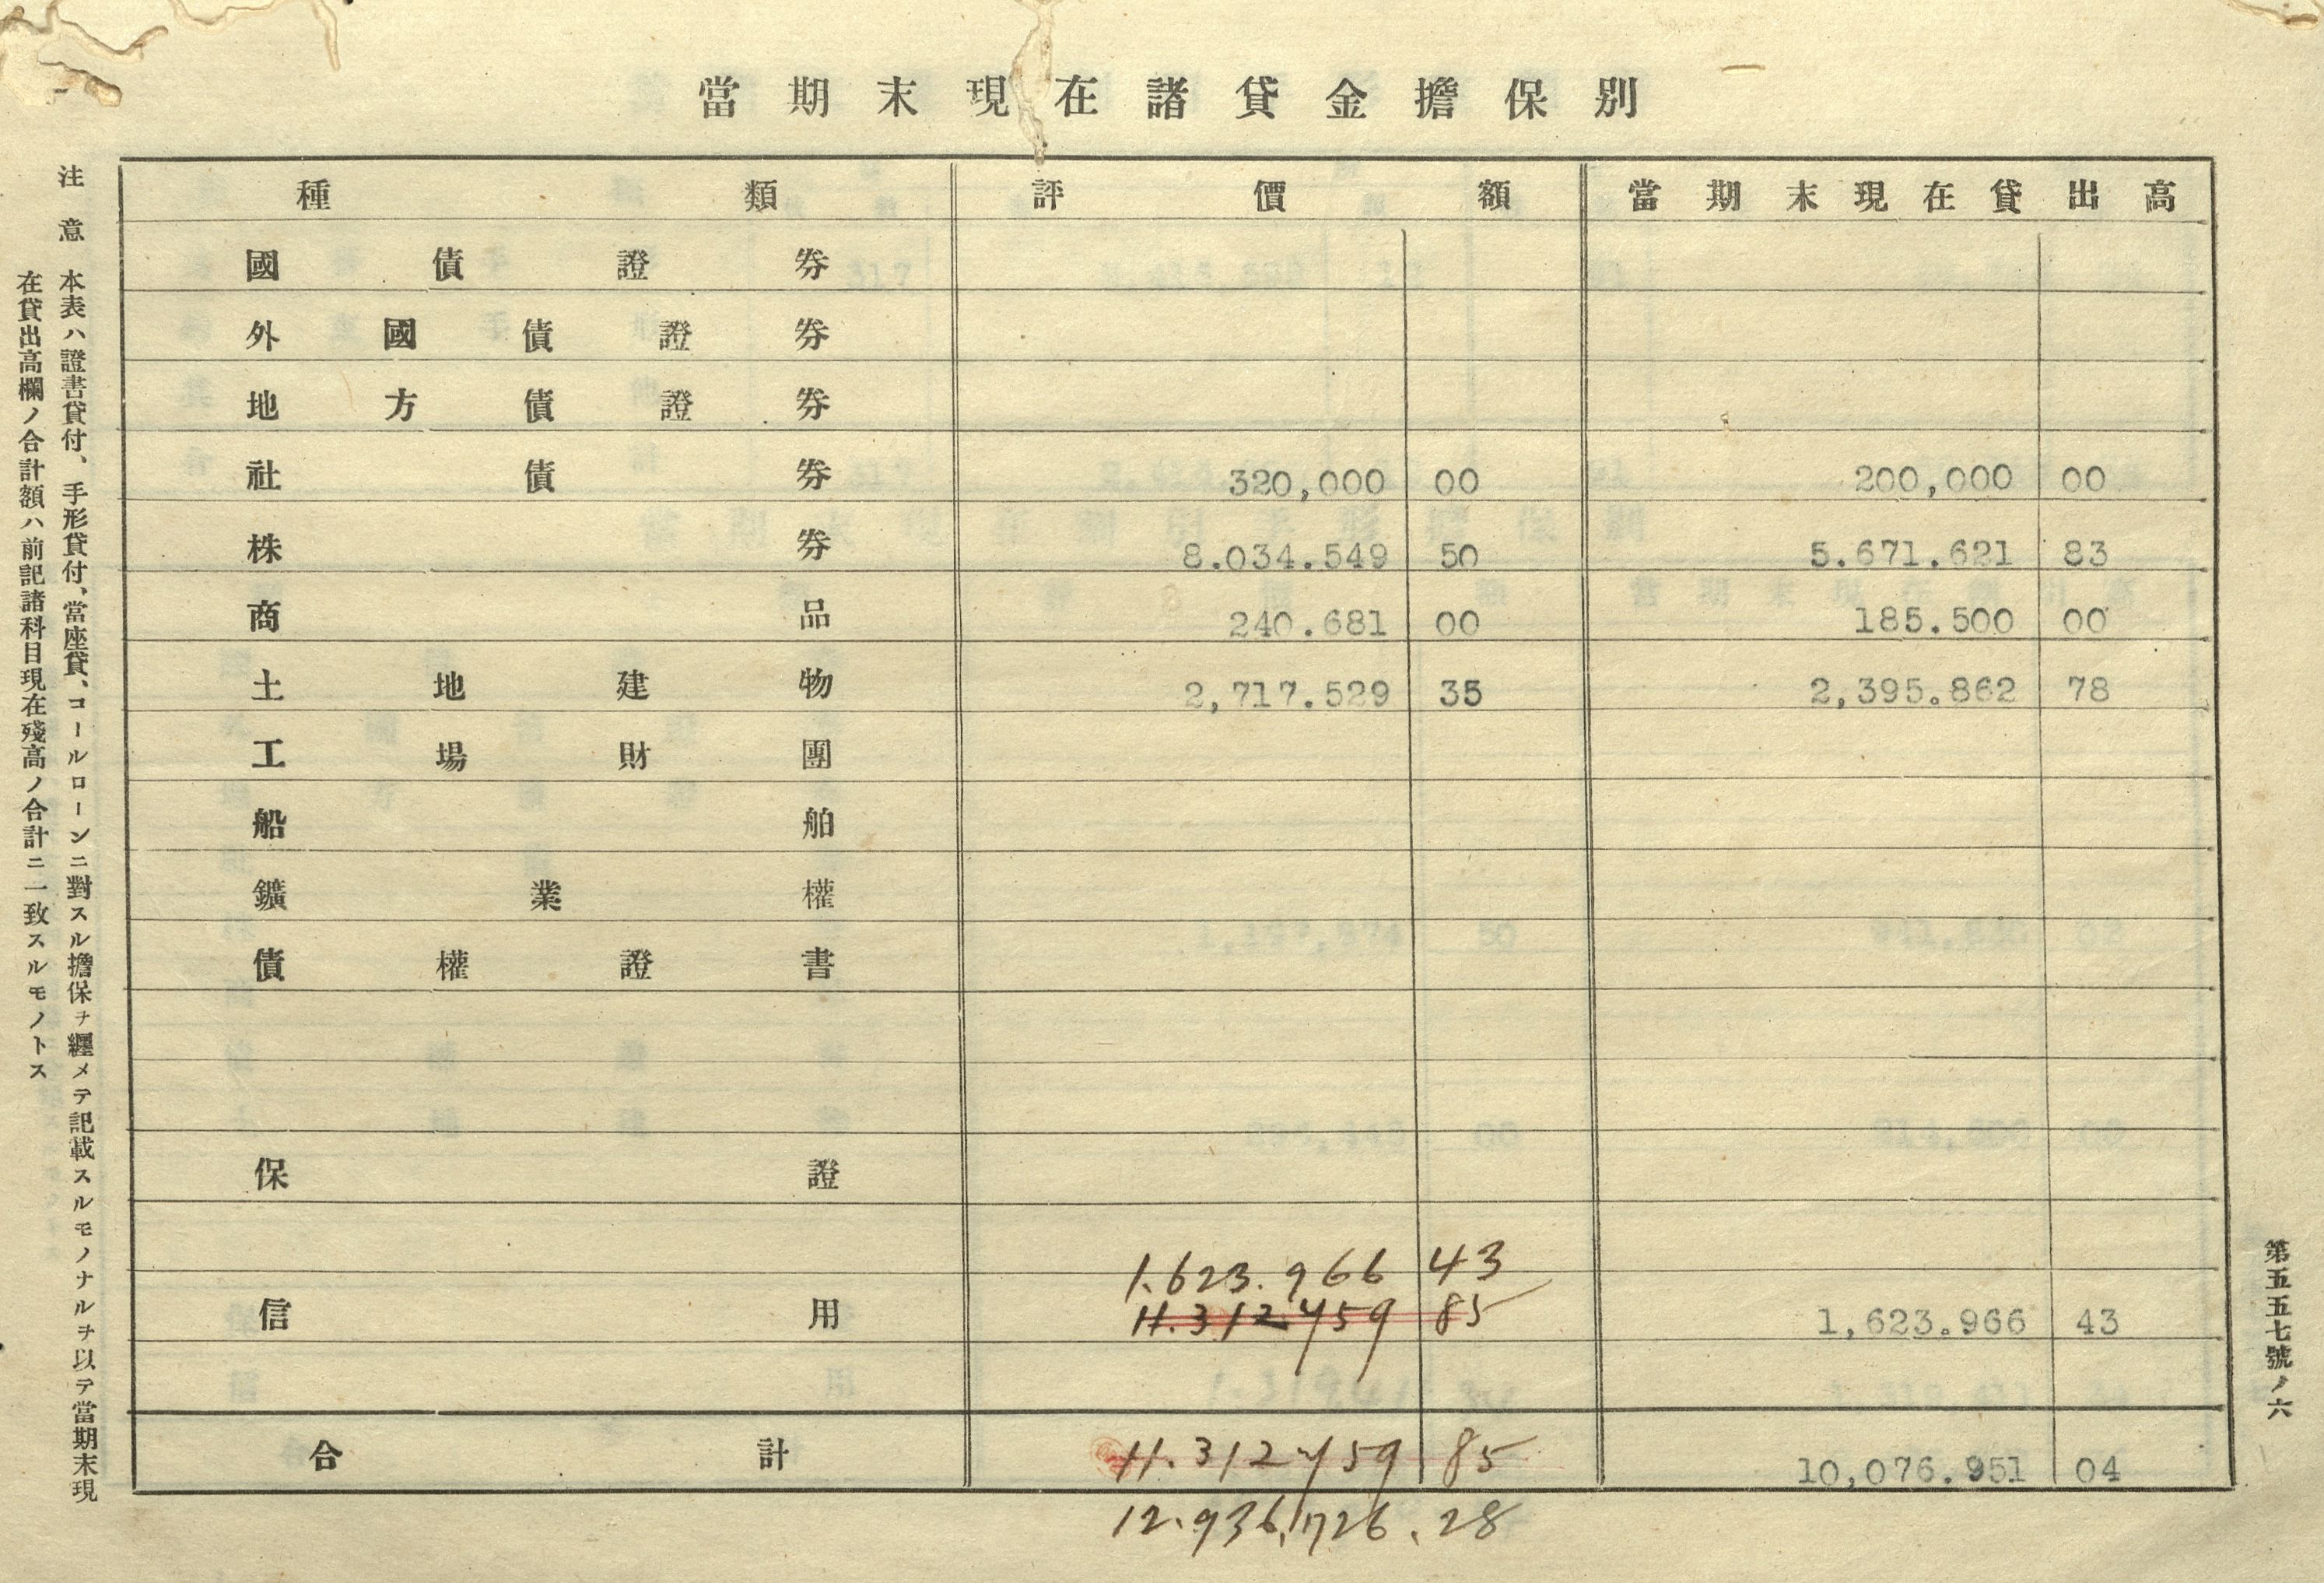 當期末現在諸貸金擔保別
種類 評價額 當期末現在貸出高
國債證券
外國債證券
地方債證券
社債券 320,000 00 200,000 00
株券 8.034.549 50 5.671.621 83
商品 240.681 00 185.500 00
土地建物 2,717.529 35 2,395.862 78
工場財團
船舶
鑛業權
債權證書
保證
1.623.966 43
信用 11.312759 85 1,623.966 43
合計 11.312759 85 10,076.951 04
12.936,726.28
注意 本表ハ證書貸付、手形貸付、當座貸、コールローンニ對スル擔保ヲ纒メテ記載スルモノナルヲ以テ當期末現
在貸出高欄ノ合計額ハ前記諸科目現在殘高ノ合計ニ一致スルモノトス
第五五七號ノ六